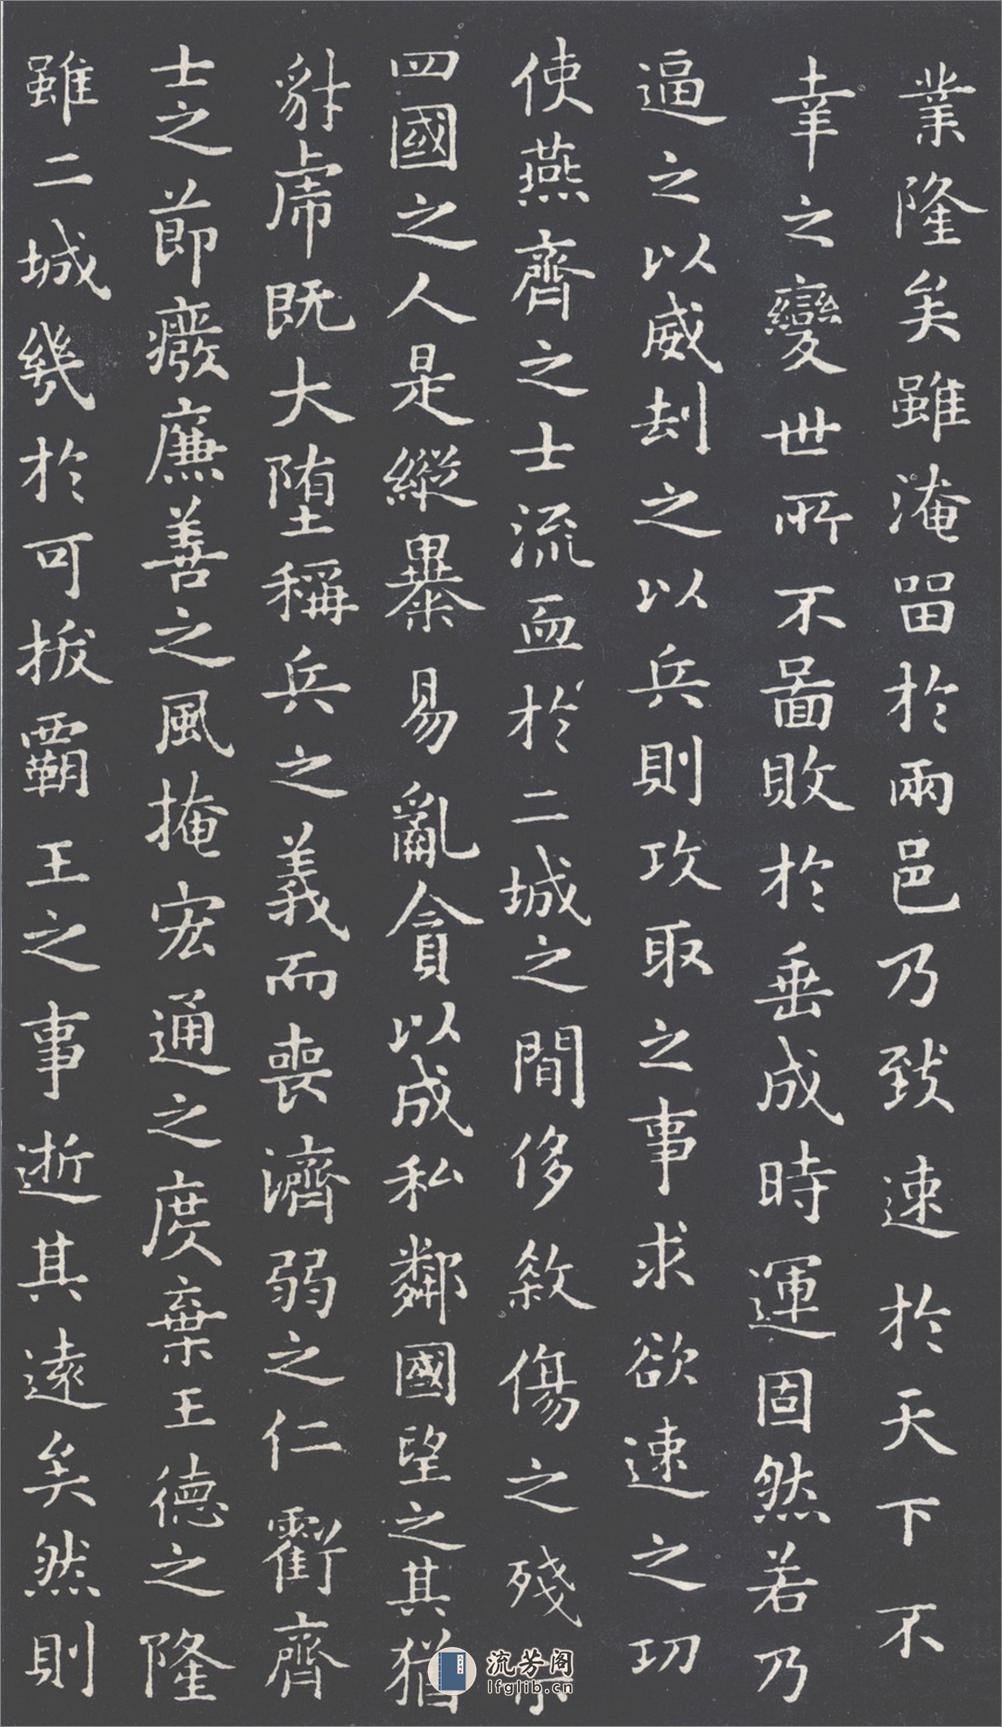 業隆矣雖淹留於兩邑乃致速於天下不
幸之變世所不圖敗於垂成時運固然若乃
逼之以威劫之以兵則攻取之事求欲速之功
使燕齊之士流血於二城之間侈敚傷之殘示
四國之人是縱暴易亂貪以成私鄰國望之其猶
豺虎既大墮稱兵之義而喪濟弱之仁虧齊
士之節廢廉善之風掩宏通之度棄王德之隆
雖二城幾於可拔霸王之事逝其遠矣然則
流芳阁
lfglib.cn